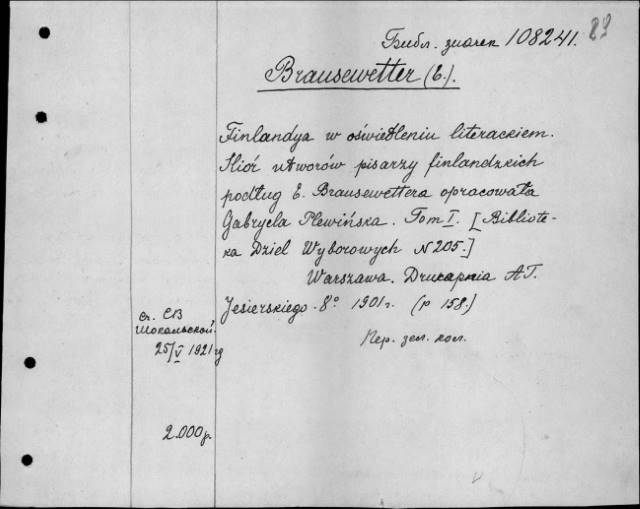 Библ. значек 108241. 23
Brausewetter (E.).
Finlandya w oświetleniu literackiem.
Zbiór utworów pisarzy finlandzkich
podług E. Brausewettera opracowała
Gabryela Plewińska. Tom I. [Bibliote-
ka Dziel Wyborowych N 205.]
Warszawa. Drukarnia A.T.
Jesierskiego. 8° 1901 г. (p 158.)
От. СВ
Шокальской.
25/V 1921 г
Пер. зел. кол.
2.000 р.